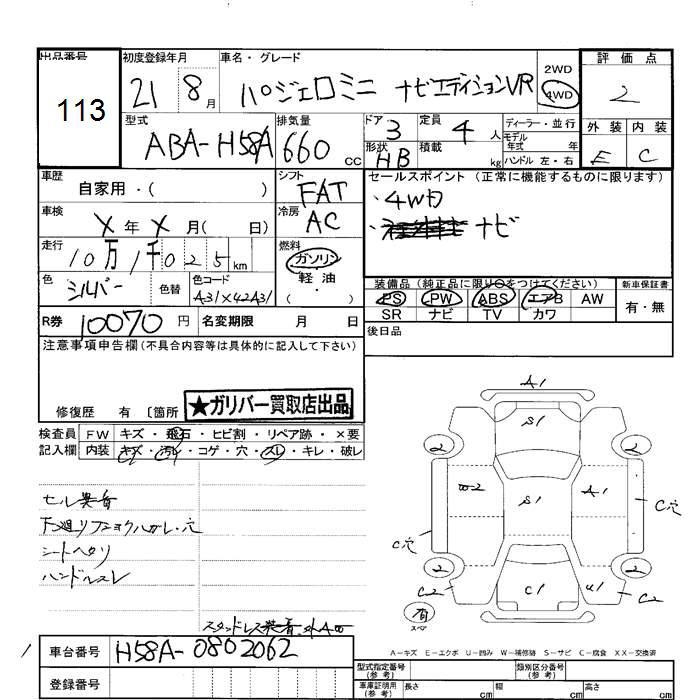 出品番号 初度登録年月 車名・グレード 評価点
113
21 8月 パジェロミニ ナビエディションVR 2WD 4WD
2
型式 排気量 ドア 定員 ディーラー・並行 外装 内装
ABA-H58A 660cc 3 4人 モデル年式 年式
形状 HB 積載 kg ハンドル 左・右 E C
車歴 シフト セールスポイント(正常に機能するものに限ります)
自家用・( ) FAT ・4WD
車検 冷房 ・ナビ
X年X月( 日) AC
走行 燃料
10万1千025km ガソリン
色 色替 色コード 軽油 装備品(純正品に限り○をつけてください) 新車保証書
シルバー A31X42A31 ・ PS PW ABS エアB AW 有・無
R券 10070円 名変期限 月 日 SR ナビ TV カワ
注意事項申告欄(不具合内容等は具体的に記入して下さい) 後日品
★ガリバー買取店出品
修復歴 有 〔箇所
検査員 FW キズ・飛石・ヒビ割・リペア跡・×要
記入欄 内装 キズ・汚レ・コゲ・穴・スレ・キレ・破レ
セル異音
シートヘタリ
ハンドルスレ
A1
S1
2 2
W2 S1 A1
C穴 C穴
2 2
C2 C1 U1 C2
有
スペア
A-キズ E-エクボ U-凹み W-補修跡 S-サビ C-腐食 XX-交換済
車台番号 H58A-0802062
登録番号
型式指定番号(参考) 類別区分番号(参考)
車庫証明用(参考) 長さ cm 幅 cm 高さ cm